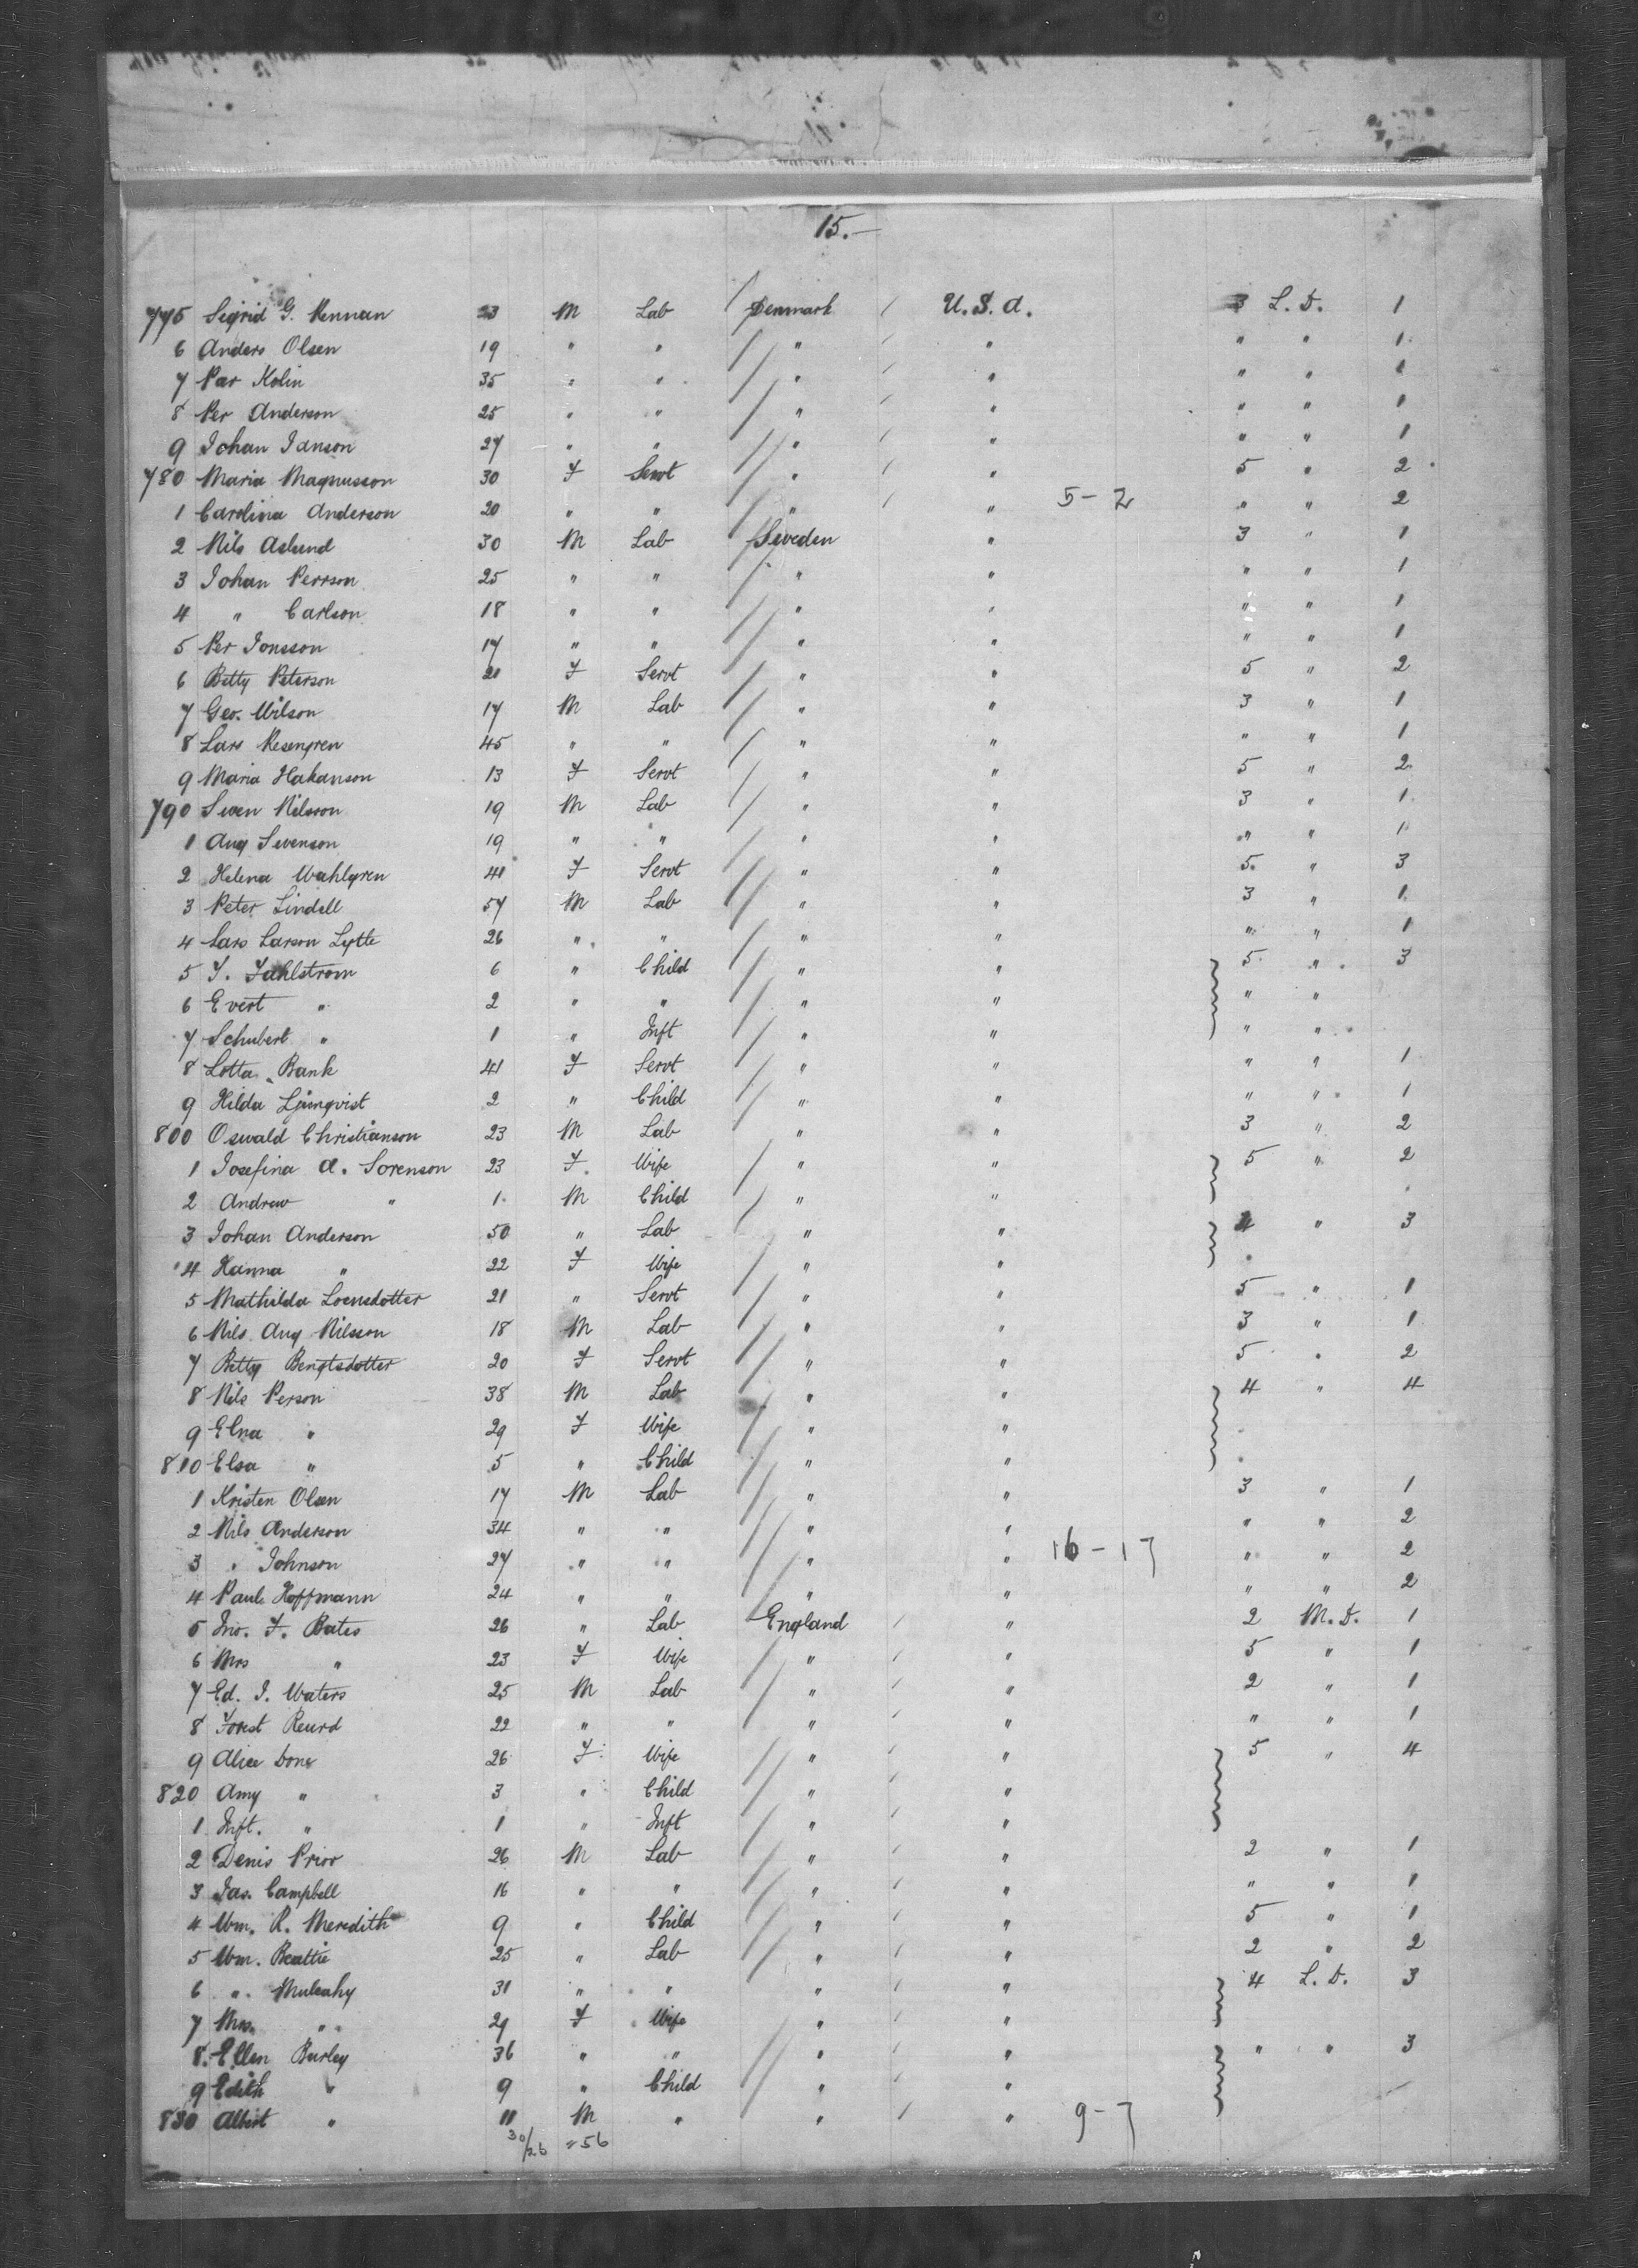 15.—
775 Sigrid G. Kennan 23 M Lab Denmark U.S.A. 3 L.D. 1
6 Anders Olsen 19 " " " " " " 1
7 Par Kolin 35 " " " " " " 1
8 Per Anderson 25 " " " " " " 1
9 Johan Janson 27 " " " " " " 1
780 Maria Magnusson 30 F Servt " " 5 " 2
1 Carolina Anderson 20 " " " " 5-2 " " 2
2 Nils Aslund 30 M Lab Sweden " 3 " 1
3 Johan Perrson 25 " " " " " " 1
4 " Carlson 18 " " " " " " 1
5 Per Jonsson 17 " " " " " " 1
6 Betty Peterson 21 F Servt " " 5 " 2
7 Geo. Wilson 17 M Lab " " 3 " 1
8 Lars Resengren 45 " " " " " " 1
9 Maria Hakanson 13 F Servt " " 5 " 2
790 Swen Nilsson 19 M Lab " " 3 " 1
1 Aug Svenson 19 " " " " " " 1
2 Helena Wahlgren 41 F Servt " " 5 " 3
3 Peter Lindell 57 M Lab " " 3 " 1
4 Lars Larson Lytte 26 " " " " " " 1
5 F. Fahlstrom 6 " Child " " 5 " 3
6 Evert " 2 " " " " " "
7 Schubert " 1 " Inft " " " "
8 Lotta Bank 41 F Servt " " " " 1
9 Hilda Ljungvist 2 " Child " " " " 1
800 Oswald Christianson 23 M Lab " " 3 " 2
1 Josefina A. Sorenson 23 F Wife " " 5 " 2
2 Andrew " 1 M Child " "
3 Johan Anderson 50 " Lab " " 4 " 3
4 Hanna " 22 F Wife " "
5 Mathilda Loensdotter 21 " Servt " " 5 " 1
6 Nils Aug Nilsson 18 M Lab " " 3 " 1
7 Betty Bengtsdotter 20 F Servt " " 5 " 2
8 Nils Person 38 M Lab " " 4 " 4
9 Elna " 29 F Wife " "
810 Elsa " 5 " Child " "
1 Kristen Olsen 17 M Lab " " 3 " 1
2 Nils Anderson 34 " " " " " " 2
3 " Johnson 27 " " " " 16-17 " " 2
4 Paul Hoffmann 24 " " " " " " 2
5 Jno. F. Bates 26 " Lab England " 2 M.D. 1
6 Mrs " 23 F Wife " " 5 " 1
7 Ed. J. Waters 25 M Lab " " 2 " 1
8 Forest Reurd 22 " " " " " " 1
9 Alice Done 26 F Wife " " 5 " 4
820 Amy " 3 " Child " "
1 Inft. " 1 " Inft " "
2 Denis Prior 26 M Lab " " 2 " 1
3 Jas. Campbell 16 " " " " " " 1
4 Wm. R. Meredith 9 " Child " " 5 " 1
5 Wm. Beattie 25 " Lab " " 2 " 2
6 " Mulcahy 31 " " " " 4 L.D. 3
7 Mrs. " 29 F Wife " "
8 Ellen Burley 36 " " " " " " 3
9 Edith " 9 " Child " "
830 Albert " 11 M " " " 9-7
30/26 =56